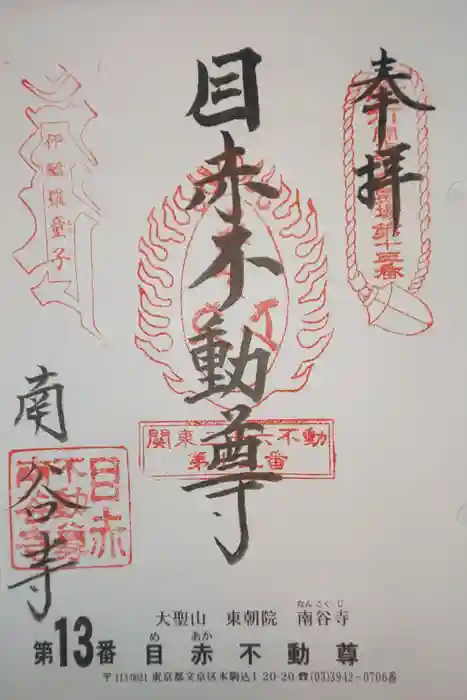 奉拝
目赤不動尊
南谷寺
伊醯羅童子
関東三十六不動
第十三番
目赤不動尊
大聖山 東朝院 南谷寺
なんこくじ
第13番 目赤不動尊
め あか
〒113-0021 東京都文京区本駒込1-20-20 ☎(03)3942-0706番